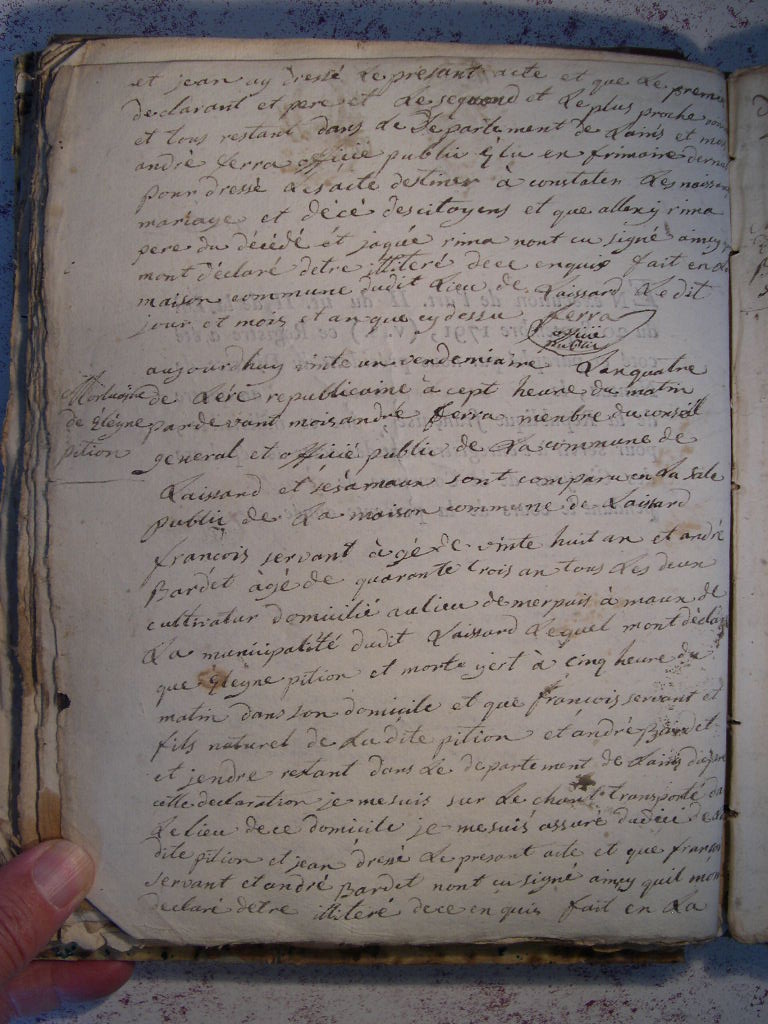 et jean ay dressé Le présant acte et que Le premie
declarant et pere et Le seguond et Le plus proche voisin
et tous restant dans Le Departement de Lains et moi
andré ferra officié public Elu en frimaire dernie
pour dressé Les acte destiner à constaten Les naissan
mariage et décé des citoyens et que allexy rima
pere du décédé et jaque rima nont cu signé ainsy
mont déclaré detre illiteré dece enquis fait en La
maison commune dudit Lieu de Laissard Le dit
jour et mois et an que cy dessu ferra
officié
public
aujourdhuy vinte un vendemiaire Lanquatre
Mortuaire
de Eléyne
pition
de Léré republicaine à cept heure du matin
pardevant mois andré ferra menbre du conseil
general et officié public de La commune de
Laissard et sésarnaux sont comparu en La sale
public de La maison commune de Laissard
francois servant àgé de vinte huit an et andré
Bardet àgé de quarante trois an tous Les deux
cultivatur domicilié au lieu de merpuis à maux de
La municipalité dudit Laissard Lequel mont décla
que Eleyne pition et morte yert à cinq heure du
matin dans son domicile et que francois servant et
fils naturel de Ladite pition et andré Bardet
et jendre restant dans Le departement de Lains
cette declaration je mesuis sur Le chant transporté da
Le lieu de ce domicile je mesuis assuré dudéci de La
dite pition et jean dressé Le presant acte et que francois
servant et andré Bardet nont cu signé ainsy quil mon
declaré detre illiteré dece en quis fait en La